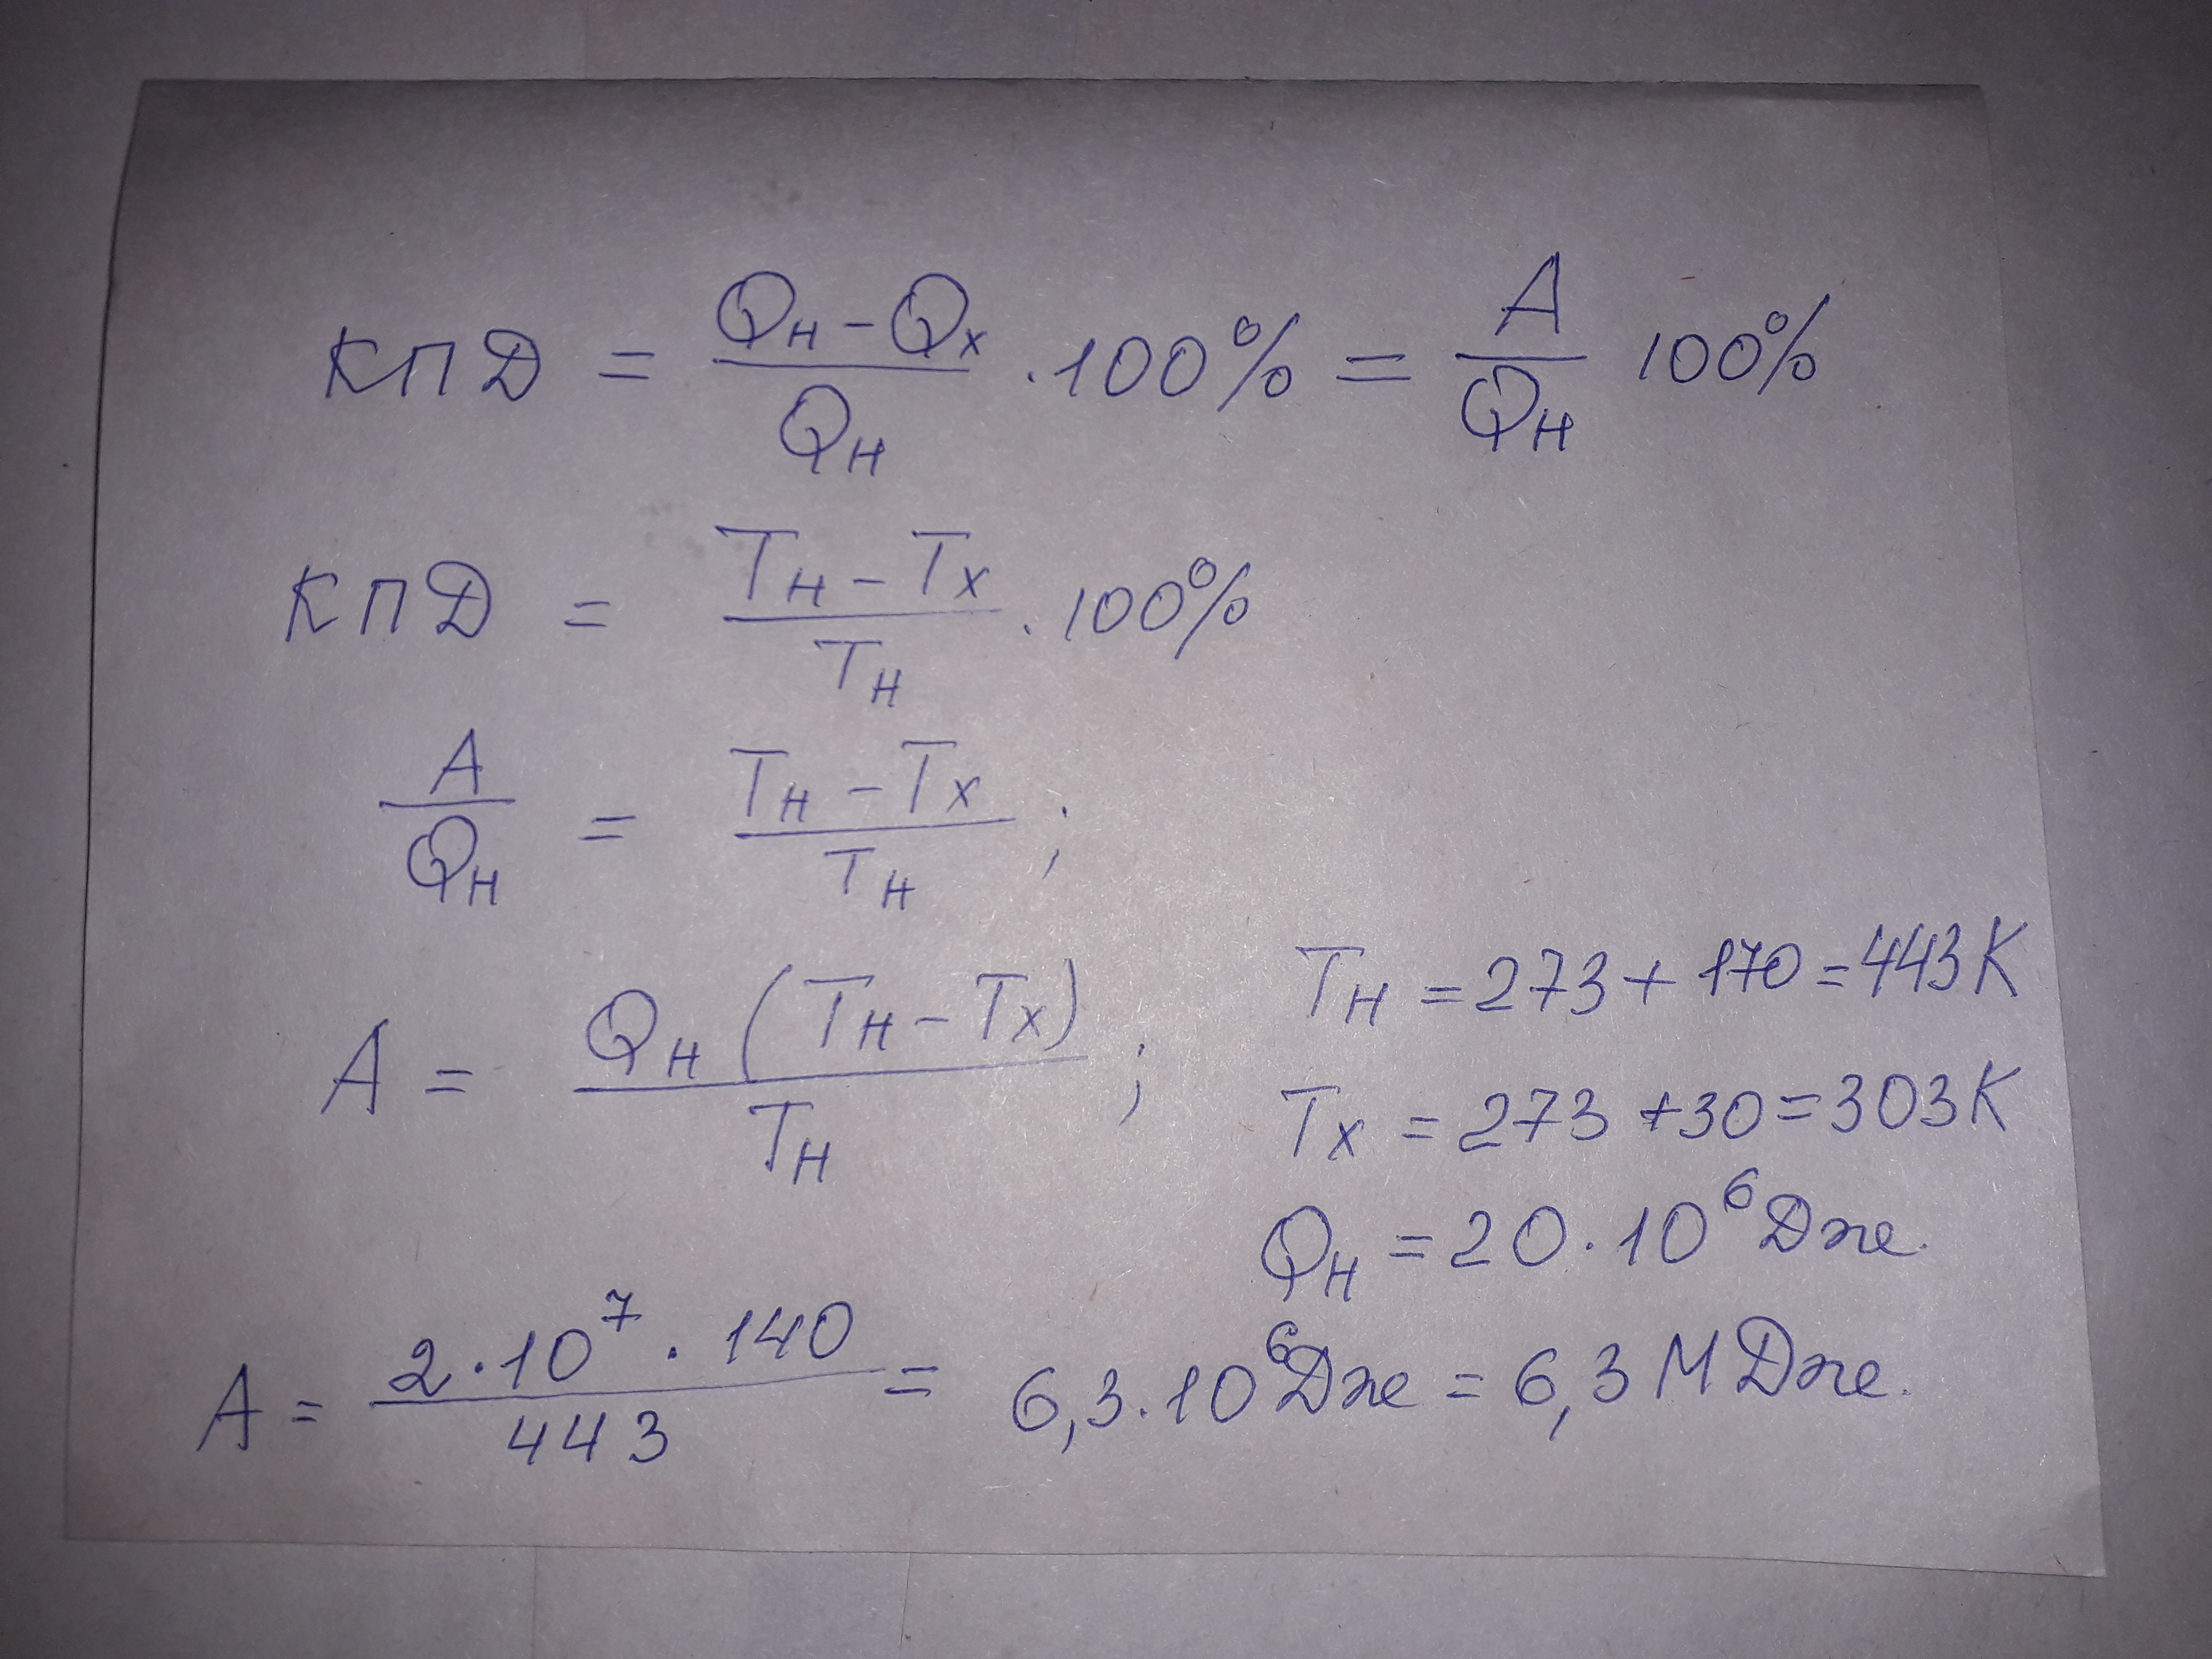 КПД = (Qн - Qх)/Qн · 100% = A/Qн 100%
КПД = (Tн - Tх)/Tн · 100%
A/Qн = (Tн - Tх)/Tн ;
A = Qн (Tн - Tх)/Tн ;
Tн = 273 + 170 = 443К
Tх = 273 + 30 = 303К
Qн = 20 · 10⁶ Дж.
A = 2 · 10⁷ · 140/443 = 6,3 · 10⁶ Дж = 6,3 МДж.